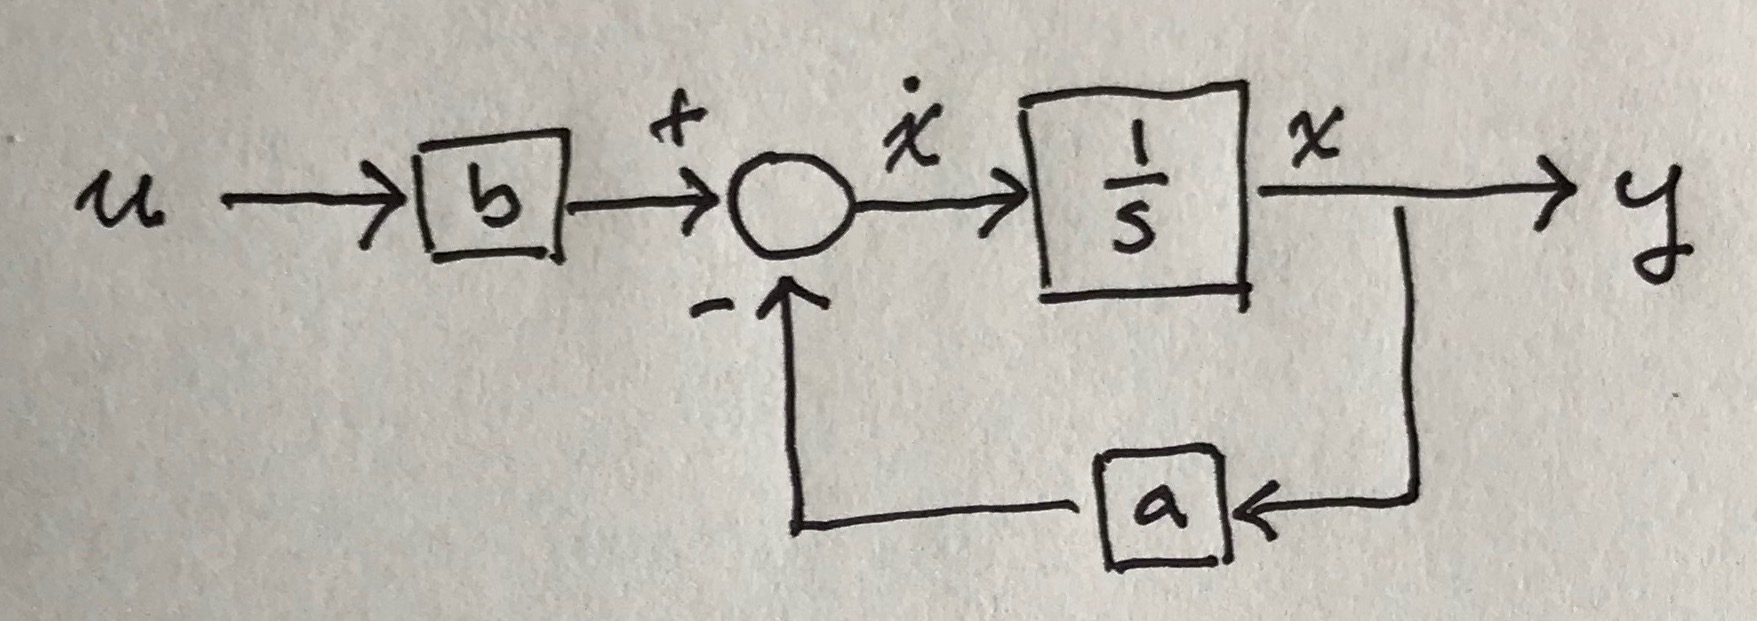 u b + ẋ 1/s x y
- a